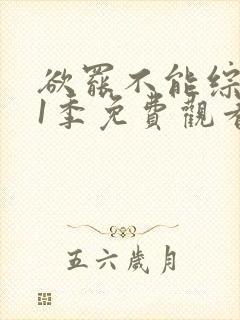 欲罷不能綜
1季免費觀看
五六歲月